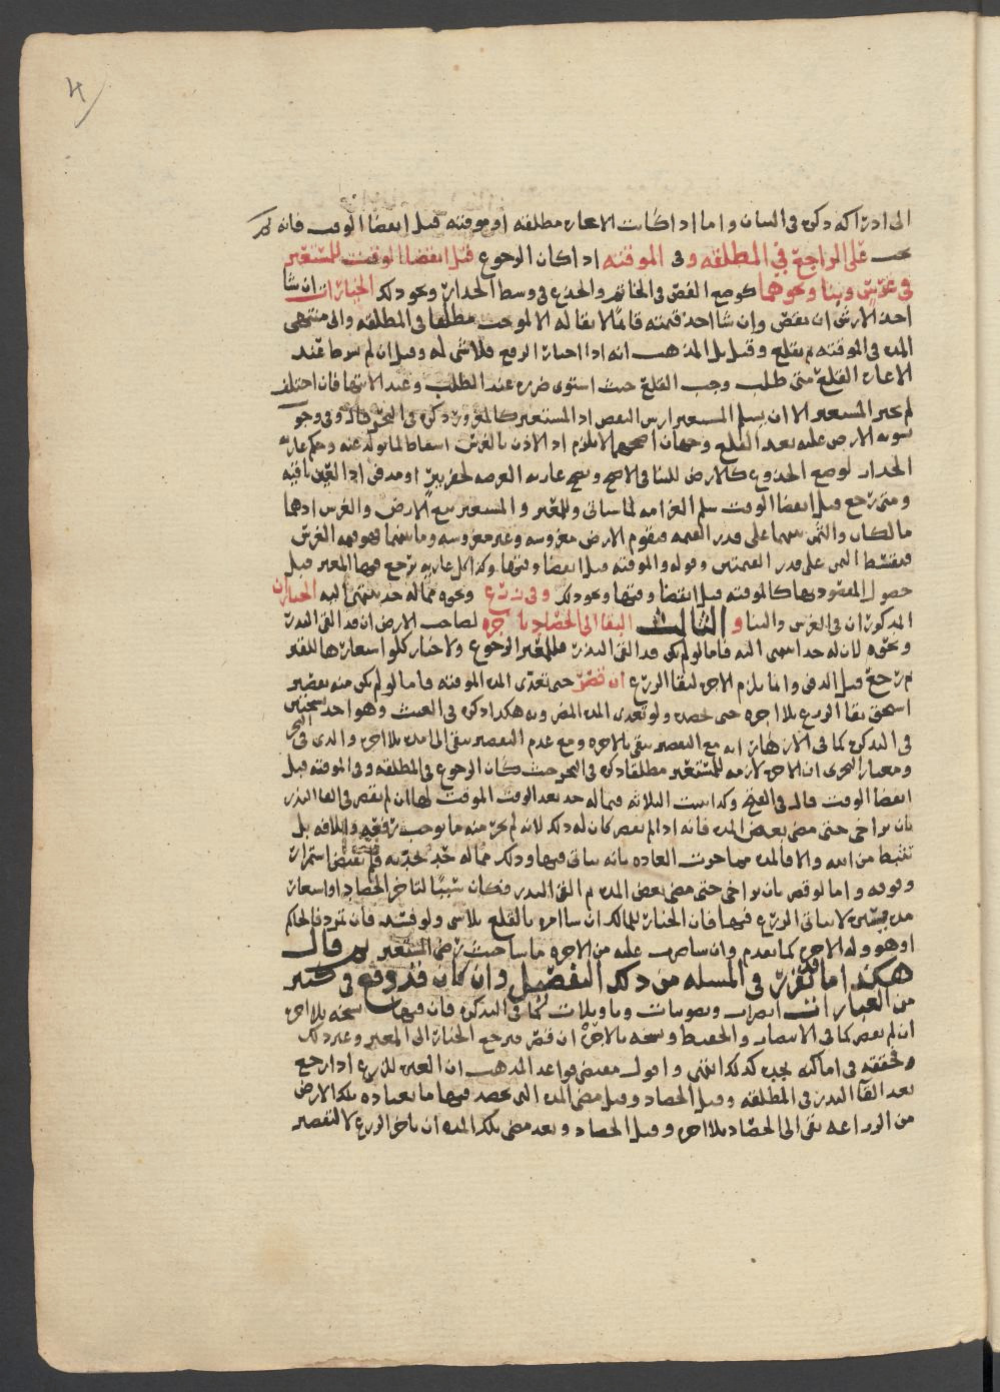 4
الى ادراكه ذكره فى البيان واما اذا كانت الاعاره مطلقه او موقته قبل انقضا الوقت فانه
على الراجع فى المطلقه وفى الموقته اذا كان الرجوع قبل انقضا الوقت للمستعير
فى غرس وبنا ونحوهما كوضع الفص فى الخاتم والجذع فى وسط الجدار ونحو ذلك الخياران ان شا
اخذ الارش ان نقص وان شا اخذ قيمته قائما لا بقا له الا لموجب مطلقا فى المطلقه والى منتهى
المده فى الموقته ثم يقلع وقيل بل المذهب انه اذا اختار الرفع فلا شى له وقيل ان لم يشرطا عند
الاعاره القلع متى طلب وجب القلع حيث استوى ضرره عند الطلب وعند الانتها فان اختلف
لم يجبر المستعير الا ان يسلم المستعير ارش النقص اذ المستعير كالمغرور ذكره فى البحر قال وفى وجو
تسويه الارض عليه بعد القلع وجهان اصحهما لا يلزم اذ الاذن بالغرس اسقاط لما تولد عنه وحكم عاريه
الجدار لوضع الجذوع كالارض للبنا فى الاصح وتصح عاريه العرصه لحفر بير او مدفن اذ العين باقيه
ومتى رجع قبل انقضا الوقت سلم الغرامه لما سياتى وللمعير والمستعير بيع الارض والغرس اذ هما
مالكان والثمن بينهما على قدر القيمه فيقوم الارض مغروسه وغير مغروسه وما بينهما فهو قيمه الغرس
فيقسط الثمن على قدر القيمتين وقوله والموقته قبل انقضا وقتها وكذا كل عاريه يرجع فيها المعير قبل
حصول المقصود بها كالموقته قبل انقضا وقتها ونحو ذلك وفى زرع ونحوه مما له حد ينتهى اليه الخياران
المذكوران فى الغرس والبنا و الثالث البقا الى الحصاد باجره لصاحب الارض ان قد القى البذر
ونحوه لان له حد ينتهى اليه فاما لو لم يكن قد القى البذر فللمعير الرجوع ولا خيار كلو استعارها للقبر
ثم رجع قبل الدفن وانما يلزم الاجره لبقا الزرع ان قصر حتى تعدى المده الموقته فاما لو لم يكن منه تقصير
استحق بقا الزرع بلا اجره حتى يحصد ولو تعدى المده المضروبه هكذا ذكره فى الغيث وهو احد
فى التذكره كما فى الازهار انه مع التقصير يبقى بالاجره ومع عدم التقصير يبقى الى امده بلا اجره والذى فى البحر
ومعيار النجرى ان الاجره لازمه للمستعير مطلقا ذكره فى البحر حيث كان الرجوع فى المطلقه وفى الموقته قبل
انقضا الوقت قال فى الفتح وكذا تثبت الثلاثه فيما له حد بعد الوقت الموقت لها ان لم يقصر فى القا البذر
بان تراخى حتى مضى بعض المده فانه اذا لم يقصر كان له ذلك لانه لم يجر منه ما يوجب رفعه واتلافه بل
وقوفه واما لو قصر بان تراخى حتى مضى بعض المده ثم القى البذر فكان سببا لتاخر الحصاد او استعار
مده يسيره لا يتاتى الزرع فيها فان الخيار للمالك ان شا امره بالقلع بلا شى ولو فسد فان تمرد فالحاكم
او هو وله الاجره كما تقدم وان شا ضرب عليه من الاجره ما شا حيث رضى المستعير ثم قال
هكذا ما تقرر فى المسئله من ذلك التفصيل وان كان قد وقع فى كثير
من العبارات اضراب وتصويبات وتاويلات كما فى التذكره فان فيها نسخه بلا اجره
ان لم يقصر كما فى الانتصار والحفيظ ونسخه بالاجره ان قصر فيرجع الخيار الى المعير وغير ذلك
وحققه فى اماكنه تجده كذلك انتهى واقول مقتضى قواعد المذهب ان المعير للزرع اذا رجع
بعد القا البذر فى المطلقه وقبل الحصاد وقبل مضى المده التى يحصد فيها ما يعتاده بتلك الارض
من الزراعه بقى الى الحصاد بلا اجره وقبل الحصاد وبعد مضى تلك المده ان تاخر الزرع لا لتقصير